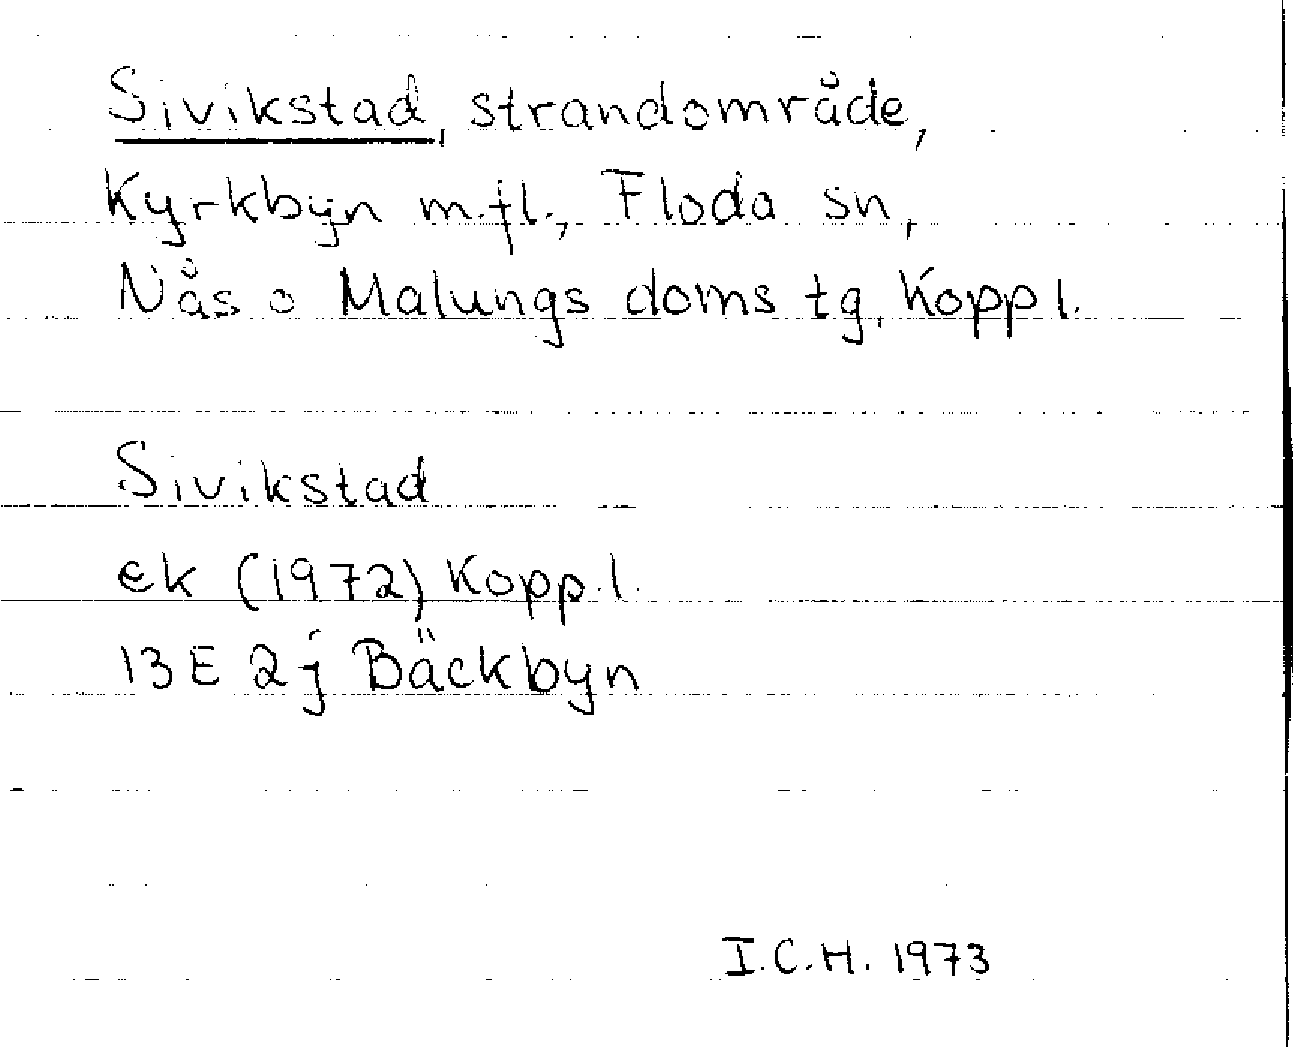 Sivikstad, strandområde,
Kyrkbyn m.fl., Floda sn,
Nås o Malungs doms tg, Kopp l.
Sivikstad
ek (1972) Kopp.l.
13E 2j Bäckbyn
I.C.H. 1973